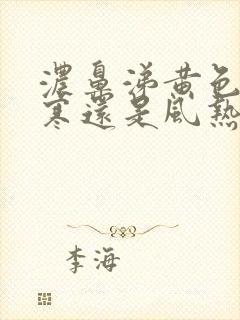 濃鼻涕黄色
寒還是風熱
李海